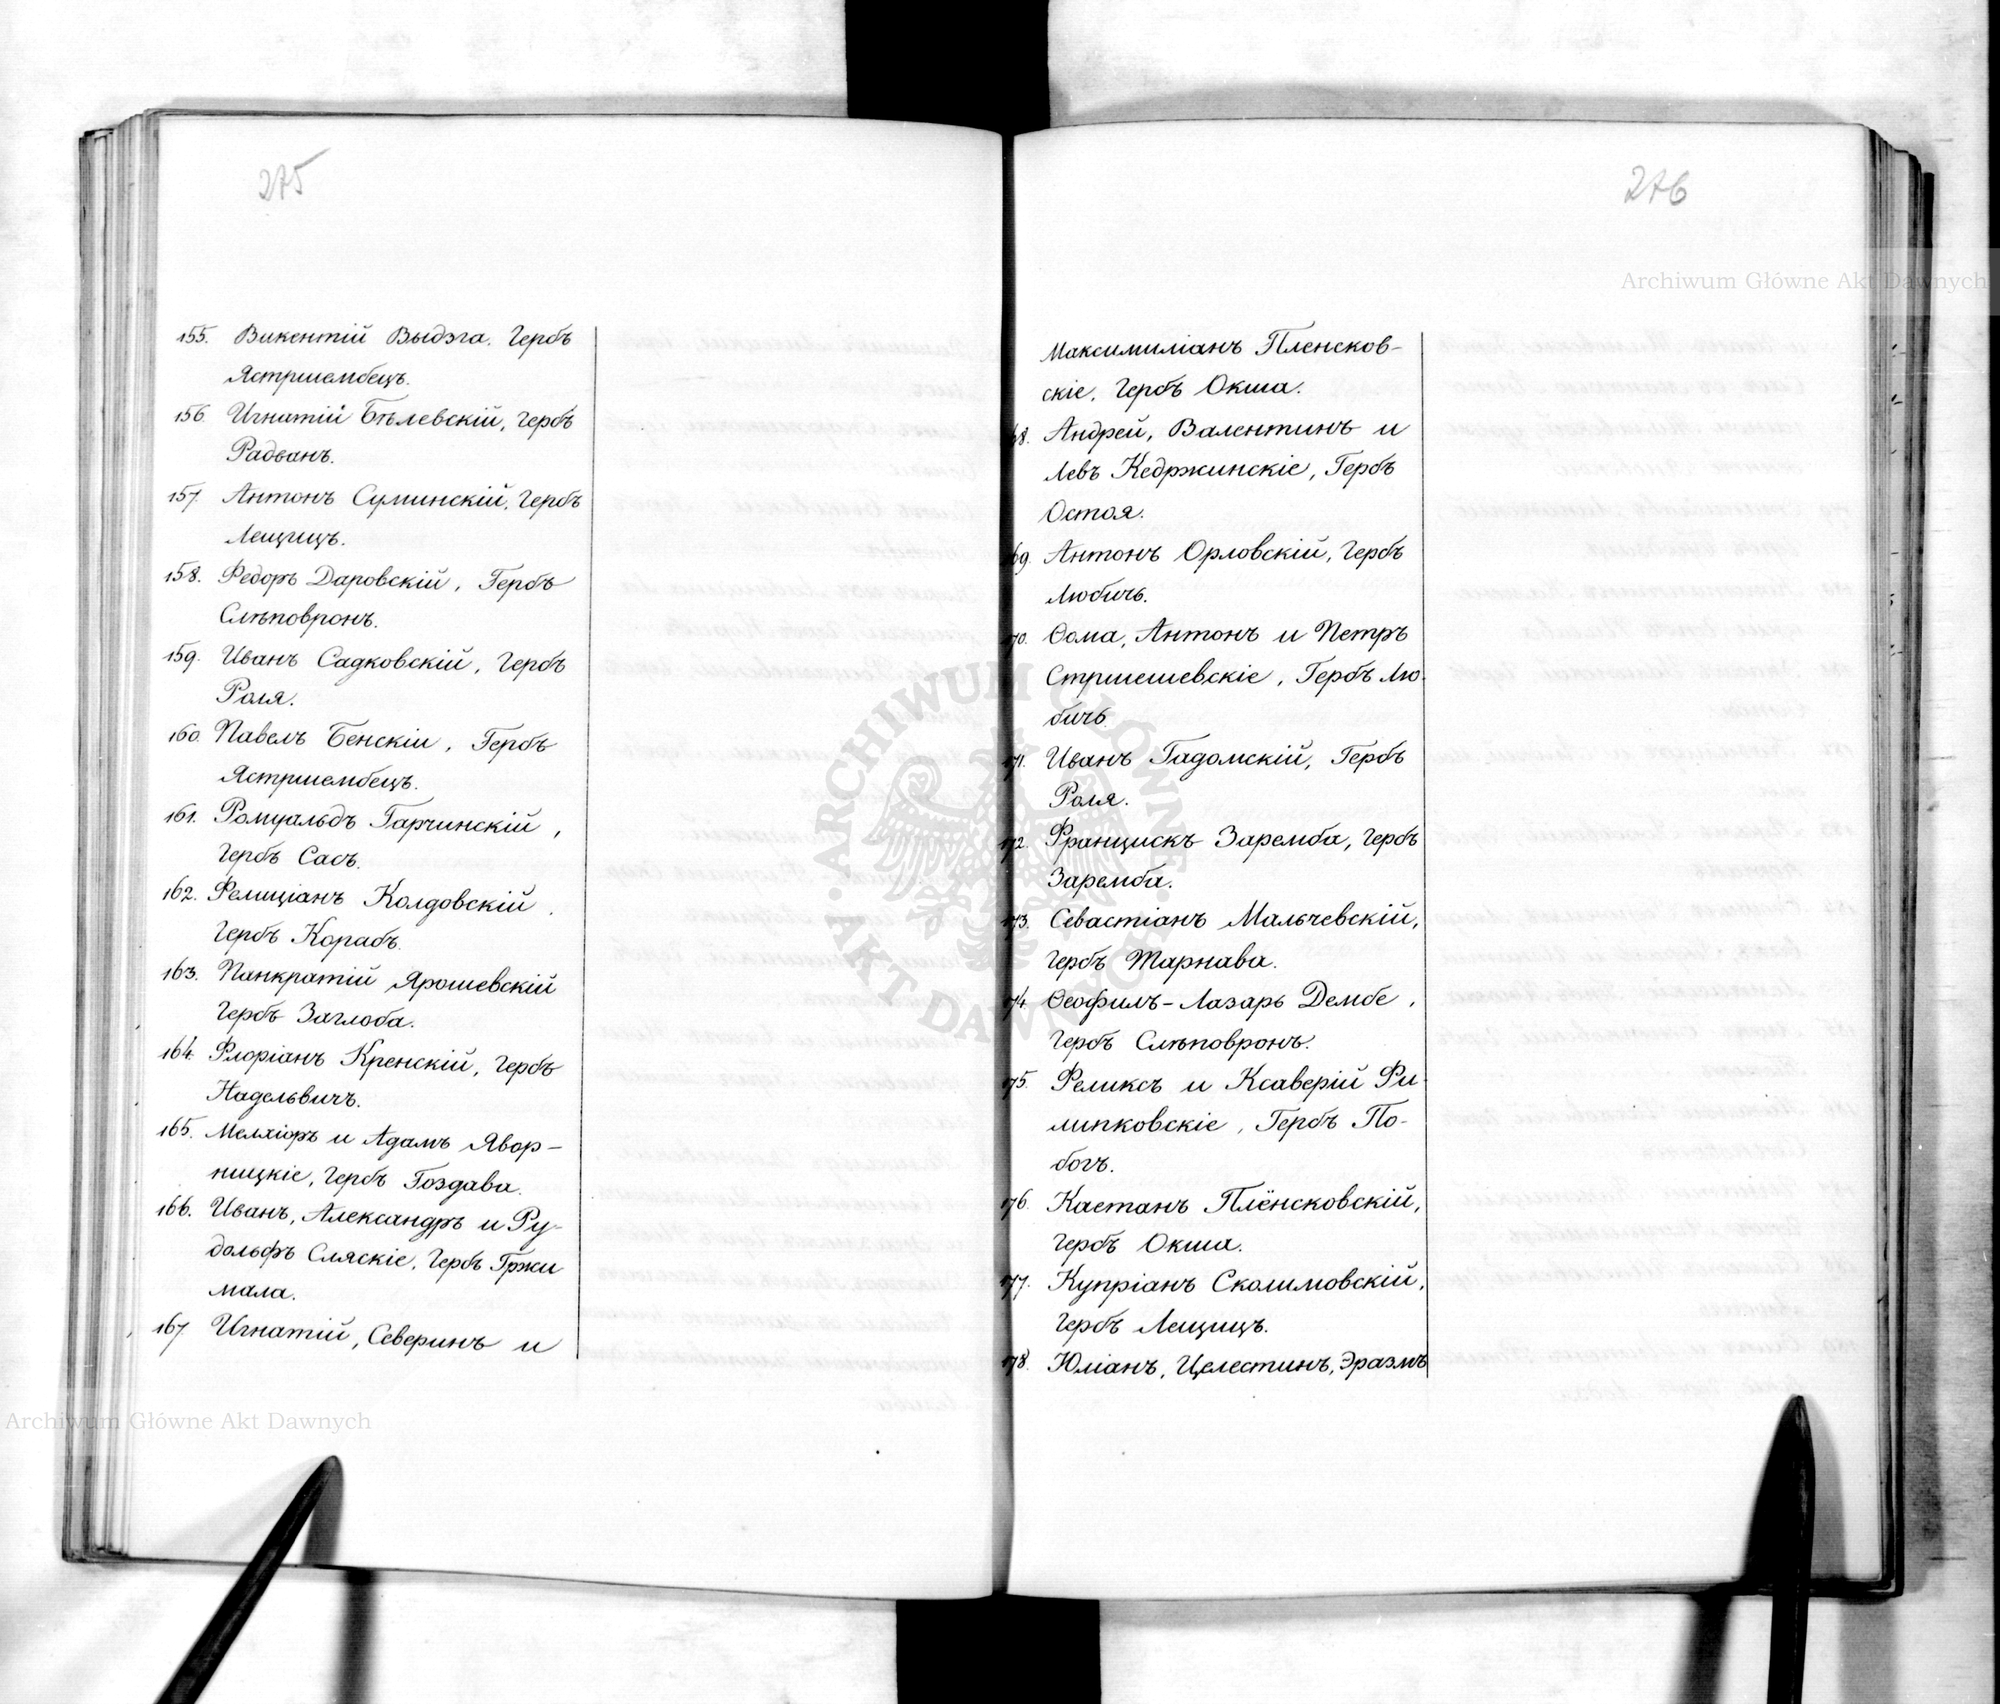 275
155. Викентій Выдзга. Гербъ
Ястршембецъ.
156. Игнатій Бѣлевскій, Гербъ
Радванъ.
157. Антонъ Суминскій, Гербъ
Лещицъ.
158. Федоръ Даровскій, Гербъ
Слѣповронъ.
159. Иванъ Садковскій, Гербъ
Роля.
160. Павелъ Бенскій, Гербъ
Ястршембецъ.
161. Ромуальдъ Гарчинскій,
Гербъ Сасъ.
162. Фелиціанъ Колдовскій,
Гербъ Корабъ.
163. Панкратій Ярошевскій
Гербъ Заглоба.
164. Флоріанъ Кренскій, Гербъ
Надельвичъ.
165. Мелхіоръ и Адамъ Явор-
ницкіе, Гербъ Гоздава.
166. Иванъ, Александръ и Ру-
дольфъ Сляскіе, Гербъ Гржи
мала.
167. Игнатій, Северинъ и
276
Максимиліанъ Пленсков-
скіе, Гербъ Окша.
68. Андрей, Валентинъ и
Левъ Кедржинскіе, Гербъ
Остоя.
69. Антонъ Орловскій, Гербъ
Любичъ.
170. Ѳома, Антонъ и Петръ
Стршешевскіе, Гербъ Лю-
бичъ
171. Иванъ Гадомскій, Гербъ
Роля.
172. Францискъ Заремба, Гербъ
Заремба.
173. Севастіанъ Мальчевскій,
Гербъ Тарнава.
174. Ѳеофилъ-Лазарь Дембе,
Гербъ Слѣповронъ.
175. Феликсъ и Ксаверій Фи-
липковскіе, Гербъ По-
богъ.
176. Каетанъ Плёнсковскій,
Гербъ Окша.
177. Купріанъ Сколимовскій,
Гербъ Лещицъ.
178. Юліанъ, Целестинъ, Эразмъ
Archiwum Główne Akt Dawnych
Archiwum Główne Akt Dawnych
ARCHIWUM GŁÓWNE
AKT DAWNYCH